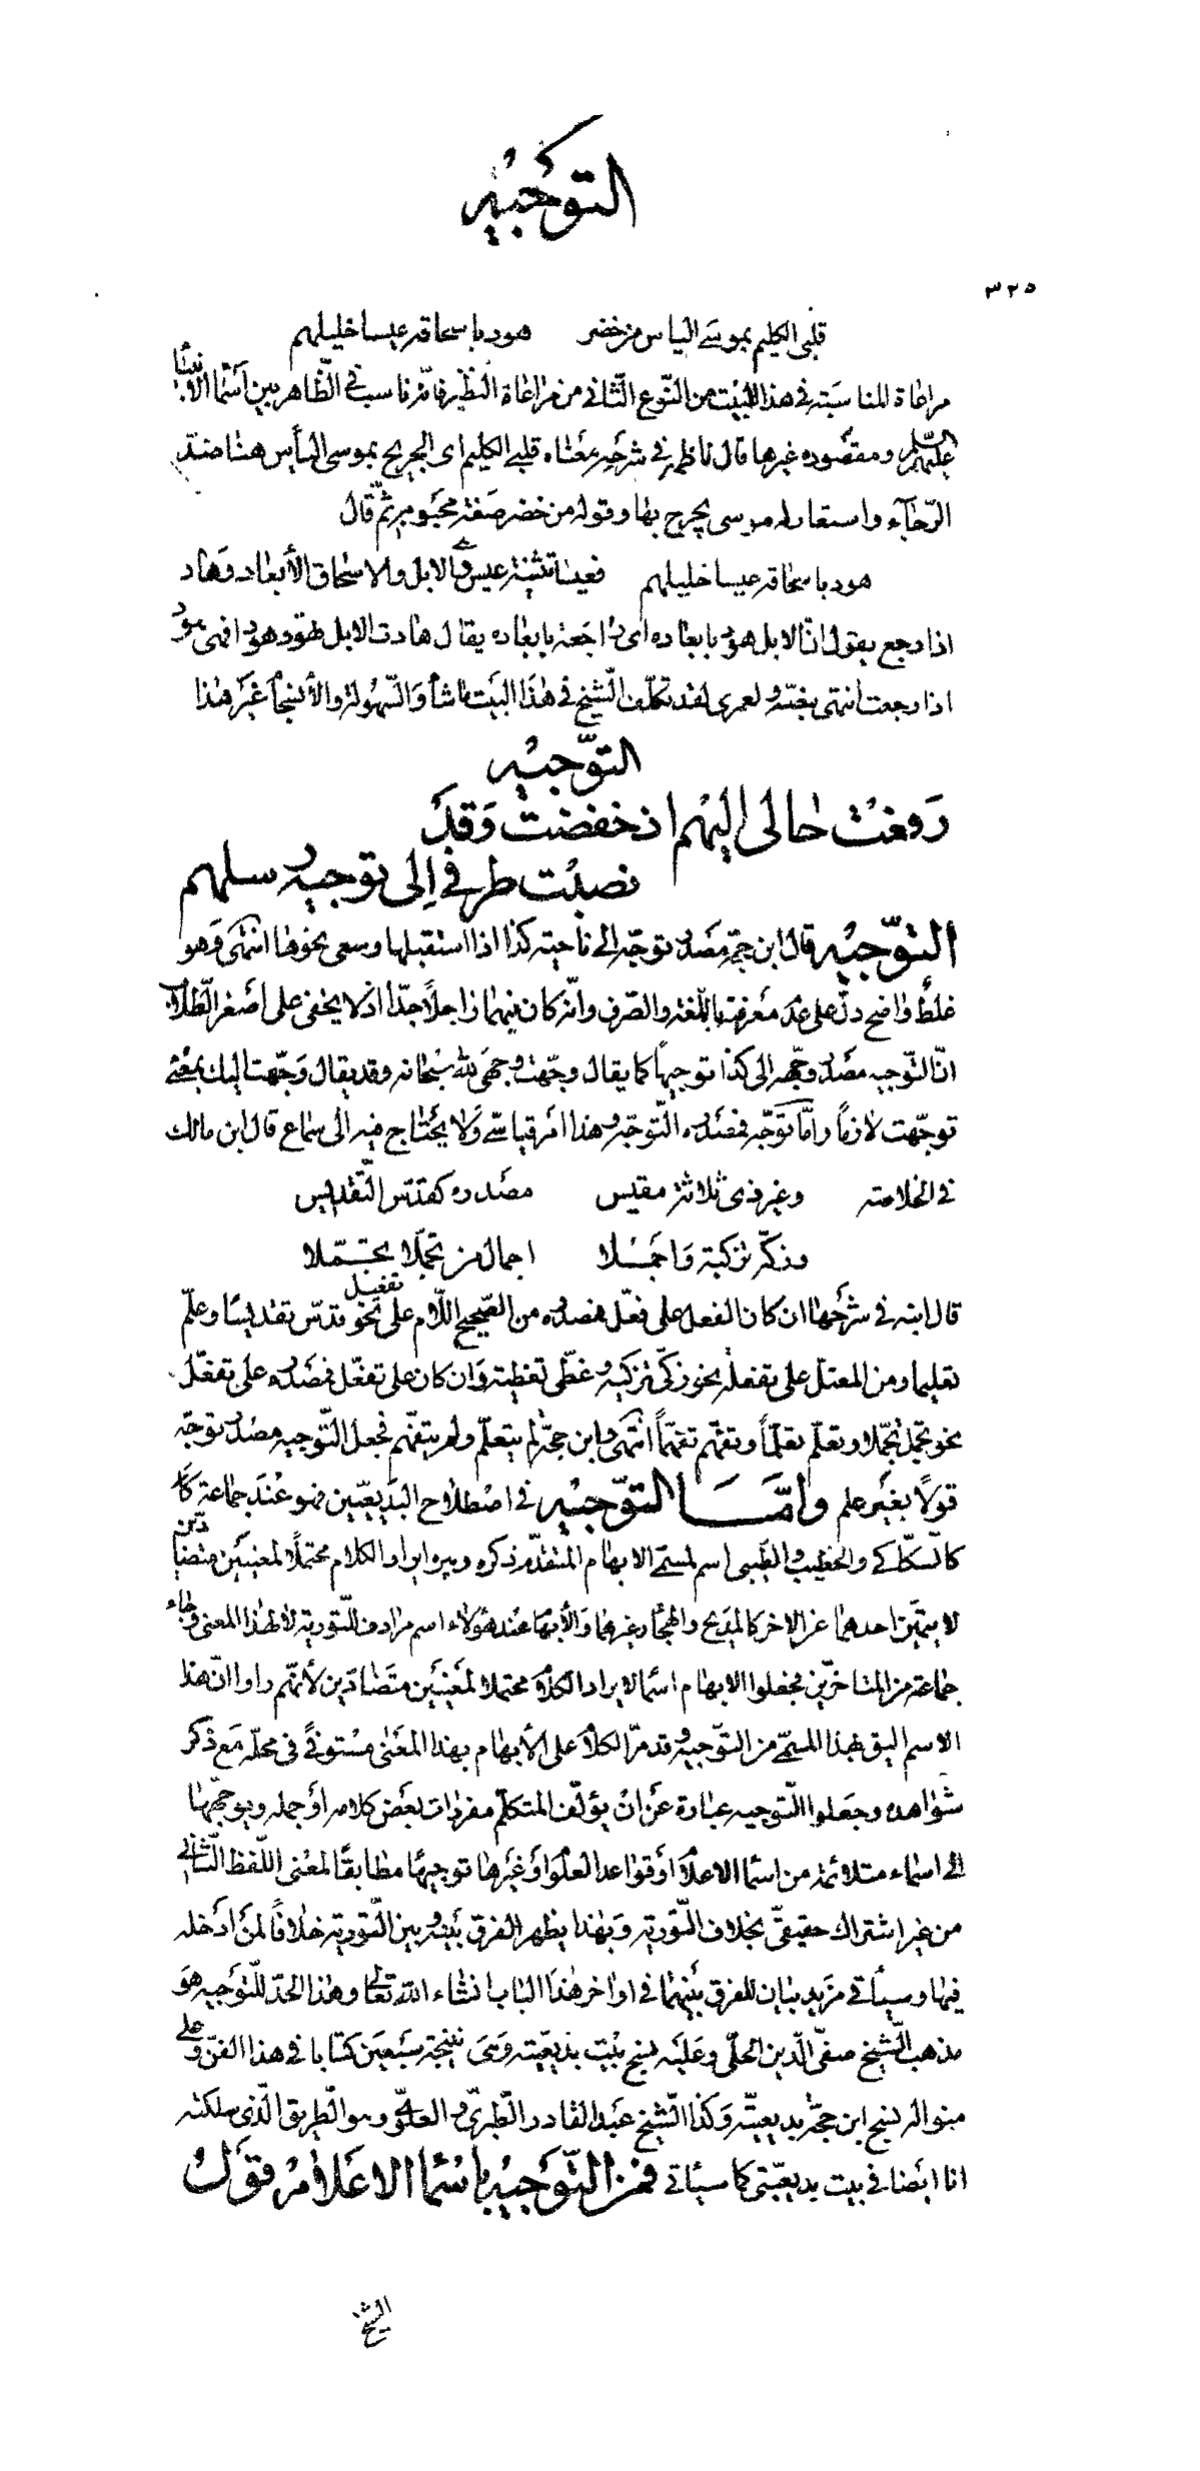 التوجيه
٣٢٥
قلبي الكليم بموسى الياس من خضر هود باسحاقه عيسا خليلهم
مراعاة المناسبة في هذا البيت من النوع الثاني من مراعاة النظير فانه ناسب في الظاهر بين اسما الانبيا
عليهم السلم ومقصوده غيرها قال ناظمه في شرحه معناه قلبي الكليم اى الجريح بموسى اليأس هنا ضد
الرجآء واستعار له موسى يجرح بها وقوله من خضر صفة محبوبه ثم قال
هود باسحاقه عيسا خليلهم فعيسا تثنية عيس وهى الابل والاسحاق الأبعاد وهاد
اذا رجع يقول ان الابل هود بابعاده اى راجعة بابعاده يقال هادت الابل تهود هودا فهى هود
اذا رجعت انتهى بنصه ولعمرى لقد تكلف الشيخ في هذا البيت ما شأ والسهولة والأنسجام غير هذا
التوجيه
رفعت حالى اليهم اذ خفضت وقد
نصبت طرفي إلى توجيه رسلهم
التوجيه قال ابن حجة مصدر توجه الى ناحية كذا اذا استقبلها وسعى نحوها انتهى وهو
غلط واضح دل على عدم معرفته باللغة والصرف وانه كان فيهما راجلاً جدا اذ لا يخفى على اصغر الطلاب
ان التوجيه مصدر وجهه الى كذا توجيهاً كما يقال وجهت وجهى لله سبحانه وقد يقال وجهت اليك بمعنى
توجهت لازماً واما توجه فمصدره التوجه وهذا امر قياسى ولا يحتاج فيه الى سماع قال ابن مالك
في الخلاصة وغير ذى ثلاثة مقيس مصدره كقدس التقديس
وزكه تزكية واجملا اجمال من تجملا تجملا
قال ابنه في شرحها ان كان الفعل على فعل فمصدره من الصحيح اللام على تفعيل نحو قدس تقديسا وعلم
تعليما ومن المعتل على تفعلة نحو زكى تزكية وغطى تغطية وان كان على تفعل فمصدره على تفعل
نحو تجمل تجملا وتعلم تعلماً وتفهم تفهماً انتهى وابن حجة لم يتعلم ولم يتفهم فجعل التوجيه مصدر توجه
قولاً بغير علم وامـــا التوجيه في اصطلاح البديعيين فهو عند جماعة
كالسكاكي والخطيب والطيبى اسم لمسمى الابهام المتقدم ذكره وهو ايراد الكلام محتملاً لمعنيين متضادين
لا يتميز احدهما عن الاخر كالمديح والهجا وغيرهما والأبهام عند هؤلاء اسم مرادف للتورية لا لهذا المعنى وجاء
جماعة من المتاخرين فجعلوا الابهام اسما لايراد الكلام محتملا لمعنيين متضادين لأنهم راوا ان هذا
الاسم اليق بهذا المسمى من التوجيه وقد مر الكلام على الأبهام بهذا المعنى مستوفىً في محله مع ذكر
شواهده وجعلوا التوجيه عبارة عن ان يؤلف المتكلم مفردات بعض كلامه او جمله ويوجهها
الى اسماء متلائمة من اسما الاعلام أو قواعد العلوم او غيرها توجيهاً مطابقًا لمعنى اللفظ الثانى
من غير اشتراك حقيقي بخلاف التورية وبهذا يظهر الفرق بينه وبين التورية خلافًا لمن ادخله
فيها وسيأتى مزيد بيان للفرق بينهما في اواخر هذا الباب ان شاء الله تعالى وهذا الحد للتوجيه هو
مذهب الشيخ صفى الدين الحلى وعليه نسج بيت بديعيته وهى نتيجة سبعين كتابا في هذا الفن وعلى
منواله نسج ابن حجة بديعيته وكذا الشيخ عبد القادر الطبرى والعلوى وهو الطريق الذى سلكته
انا ايضا في بيت بديعيتى كما سيأتى فمن التوجيه باسما الاعلام قول
الشيخ